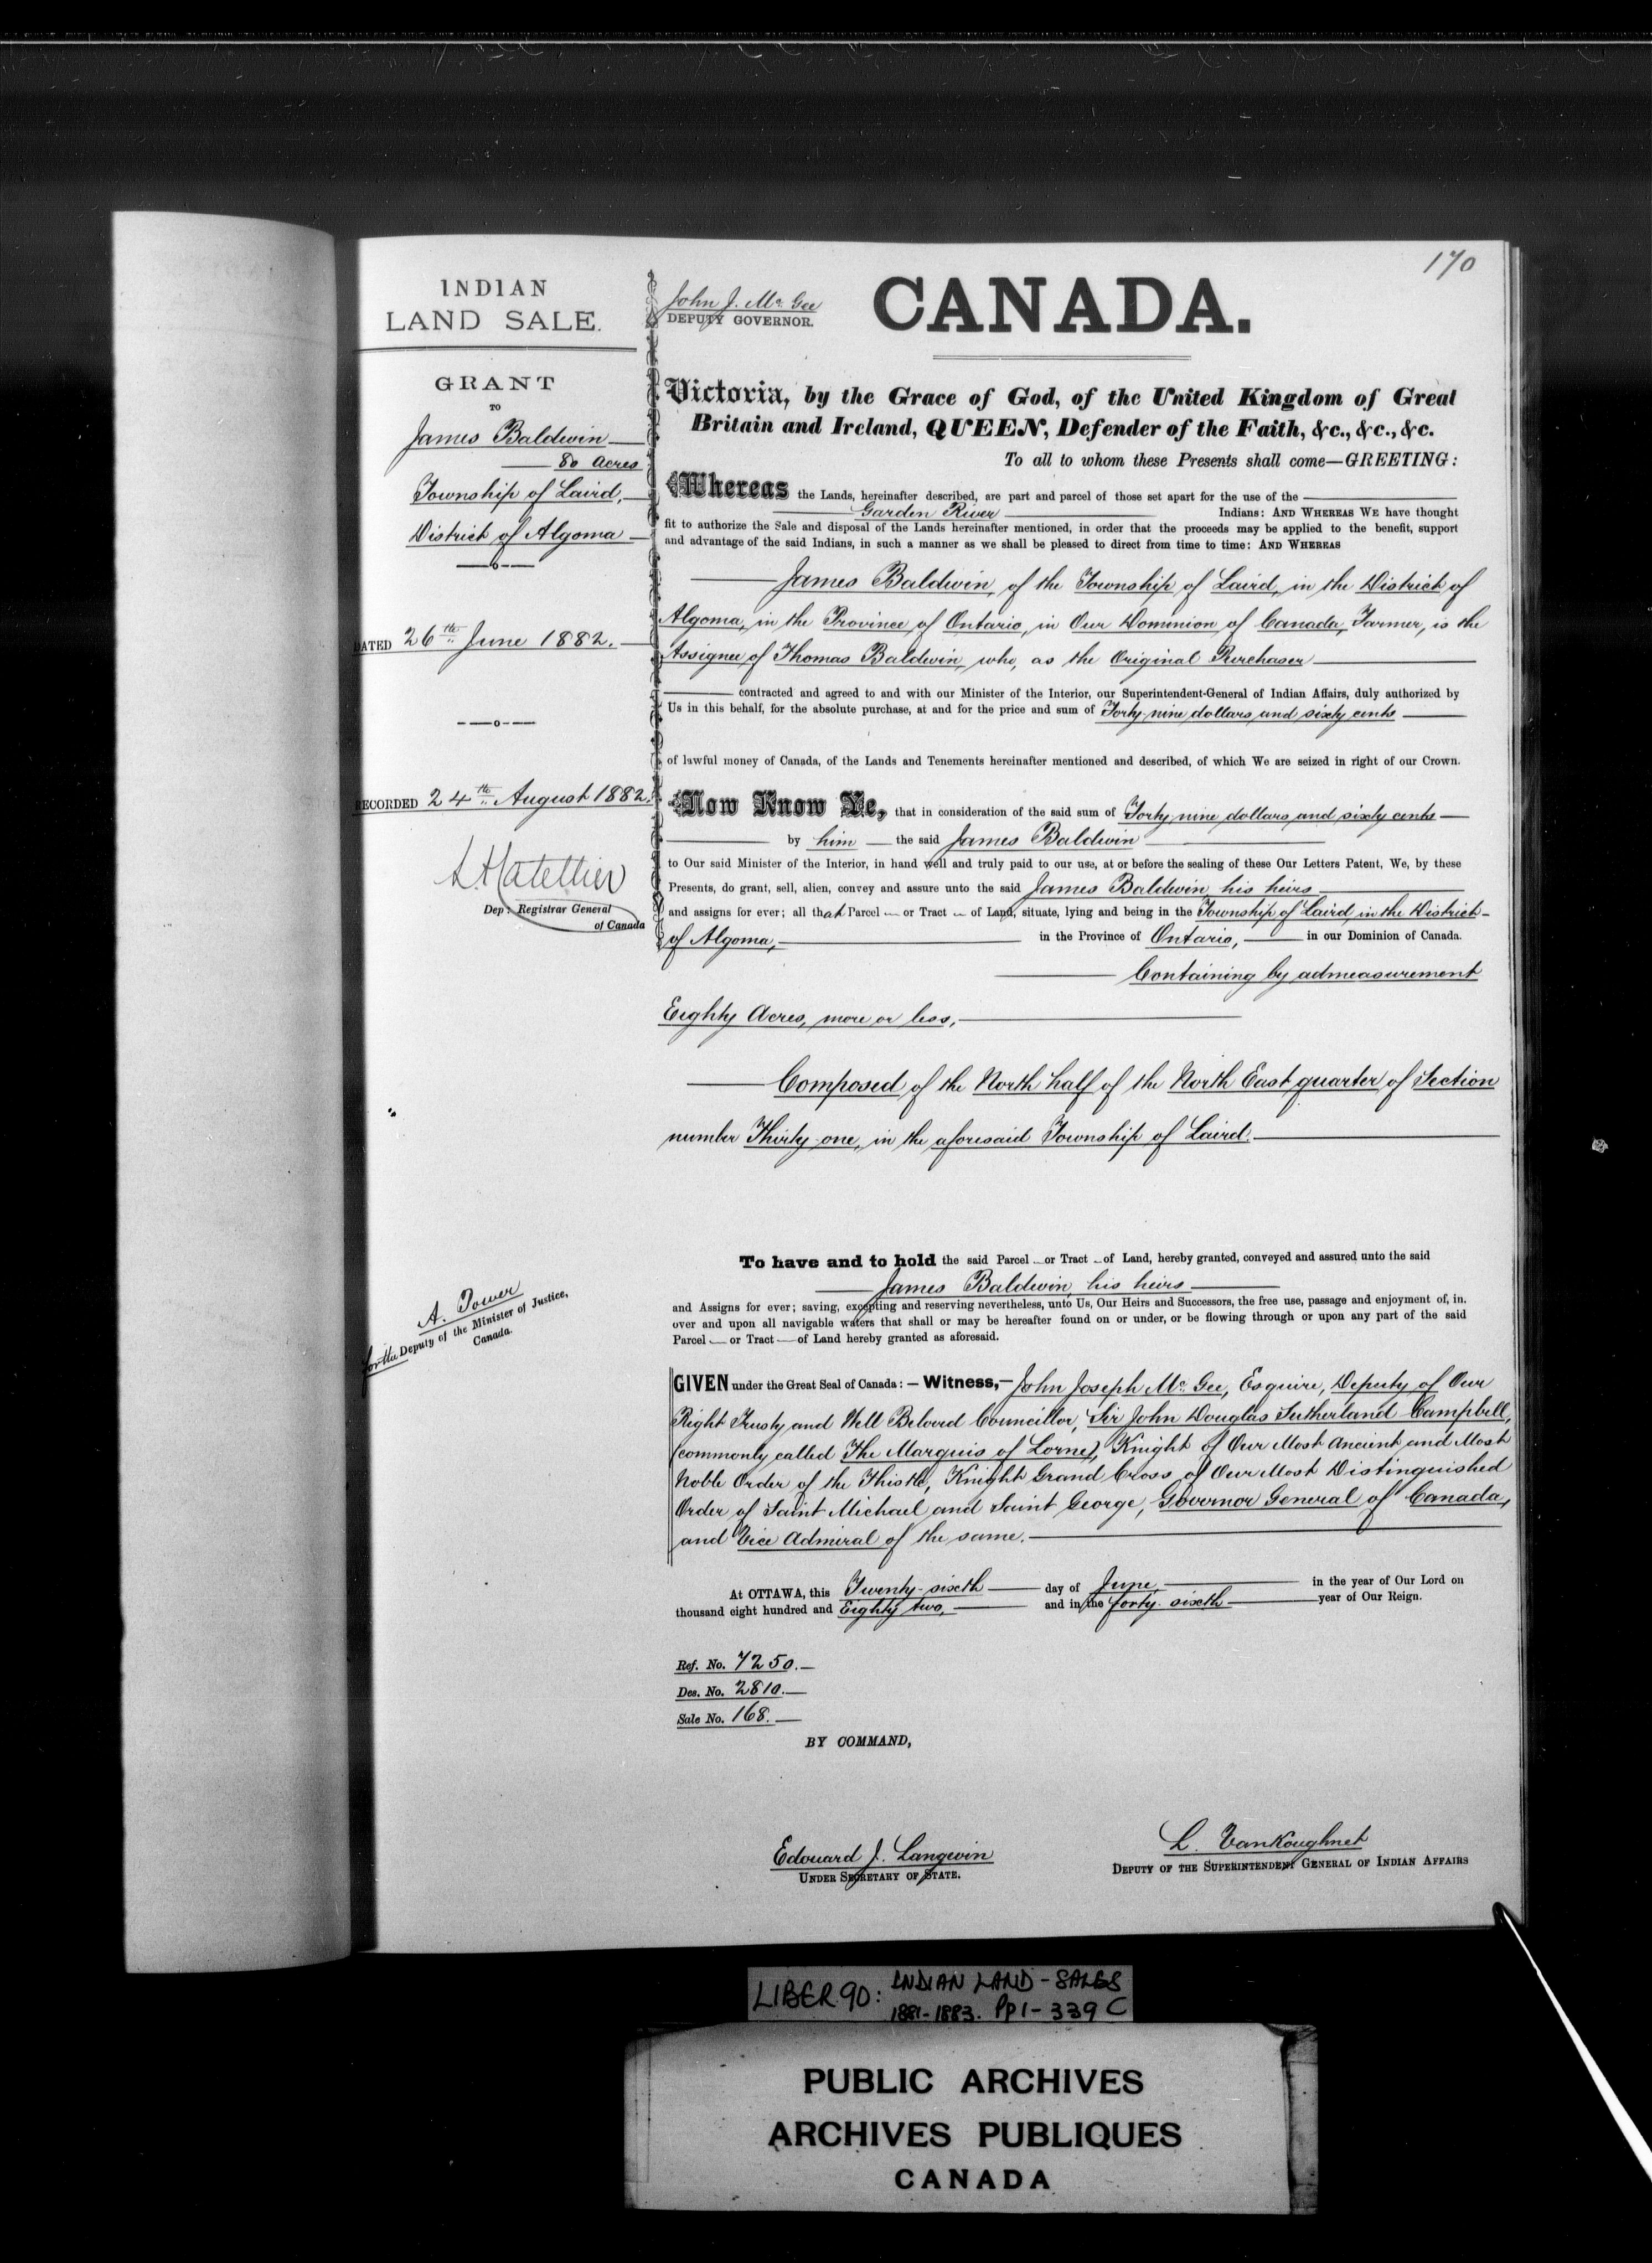 170
INDIAN
LAND SALE.
GRANT
TO
James Baldwin
80 Acres
Township of Laird,
District of Algoma
DATED 26th June 1882.
RECORDED 24th August 1882.
Dep: Registrar General
of Canada
A. Power
for the Deputy of the Minister of Justice,
Canada.
John J. McGee
DEPUTY GOVERNOR.
CANADA.
Victoria, by the Grace of God, of the United Kingdom of Great
Britain and Ireland, QUEEN, Defender of the Faith, &c., &c., &c.
To all to whom these Presents shall come—GREETING:
Whereas the Lands, hereinafter described, are part and parcel of those set apart for the use of the
Garden River Indians: AND WHEREAS WE have thought
fit to authorize the Sale and disposal of the Lands hereinafter mentioned, in order that the proceeds may be applied to the benefit, support
and advantage of the said Indians, in such a manner as we shall be pleased to direct from time to time: AND WHEREAS
James Baldwin, of the Township of Laird, in the District of
Algoma, in the Province of Ontario, in Our Dominion of Canada, Farmer, is the
Assignee of Thomas Baldwin, who, as the Original Purchaser
contracted and agreed to and with our Minister of the Interior, our Superintendent-General of Indian Affairs, duly authorized by
Us in this behalf, for the absolute purchase, at and for the price and sum of Forty-nine dollars and sixty cents
of lawful money of Canada, of the Lands and Tenements hereinafter mentioned and described, of which We are seized in right of our Crown.
Now Know Ye, that in consideration of the said sum of Forty-nine dollars and sixty cents
by him the said James Baldwin
to Our said Minister of the Interior, in hand well and truly paid to our use, at or before the sealing of these Our Letters Patent, We, by these
Presents, do grant, sell, alien, convey and assure unto the said James Baldwin, his heirs
and assigns for ever; all that Parcel or Tract of Land, situate, lying and being in the Township of Laird, in the District
of Algoma, in the Province of Ontario, in our Dominion of Canada.
Containing by admeasurement
Eighty Acres, more or less,
Composed of the North half of the North East quarter of Section
number Thirty-one, in the aforesaid Township of Laird.
To have and to hold the said Parcel or Tract of Land, hereby granted, conveyed and assured unto the said
James Baldwin, his heirs
and Assigns for ever; saving, excepting and reserving nevertheless, unto Us, Our Heirs and Successors, the free use, passage and enjoyment of, in,
over and upon all navigable waters that shall or may be hereafter found on or under, or be flowing through or upon any part of the said
Parcel or Tract of Land hereby granted as aforesaid.
GIVEN under the Great Seal of Canada:—Witness,—John Joseph McGee, Esquire, Deputy of Our
Right Trusty and Well Beloved Councillor, Sir John Douglas Sutherland Campbell,
(commonly called The Marquis of Lorne), Knight of Our Most Ancient and Most
Noble Order of the Thistle, Knight Grand Cross of Our Most Distinguished
Order of Saint Michael and Saint George, Governor General of Canada,
and Vice Admiral of the same.
At OTTAWA, this Twenty-sixth day of June, in the year of Our Lord on
thousand eight hundred and Eighty two, and in the forty-sixth year of Our Reign.
Ref. No. 7250.
Des. No. 2810.
Sale No. 168.
BY COMMAND,
Edouard J. Langevin
UNDER SECRETARY OF STATE.
L. VanKoughnet
DEPUTY OF THE SUPERINTENDENT GENERAL OF INDIAN AFFAIRS
LIBER 90: INDIAN LAND-SALES
1881-1883. Pp 1-339 C
PUBLIC ARCHIVES
ARCHIVES PUBLIQUES
CANADA